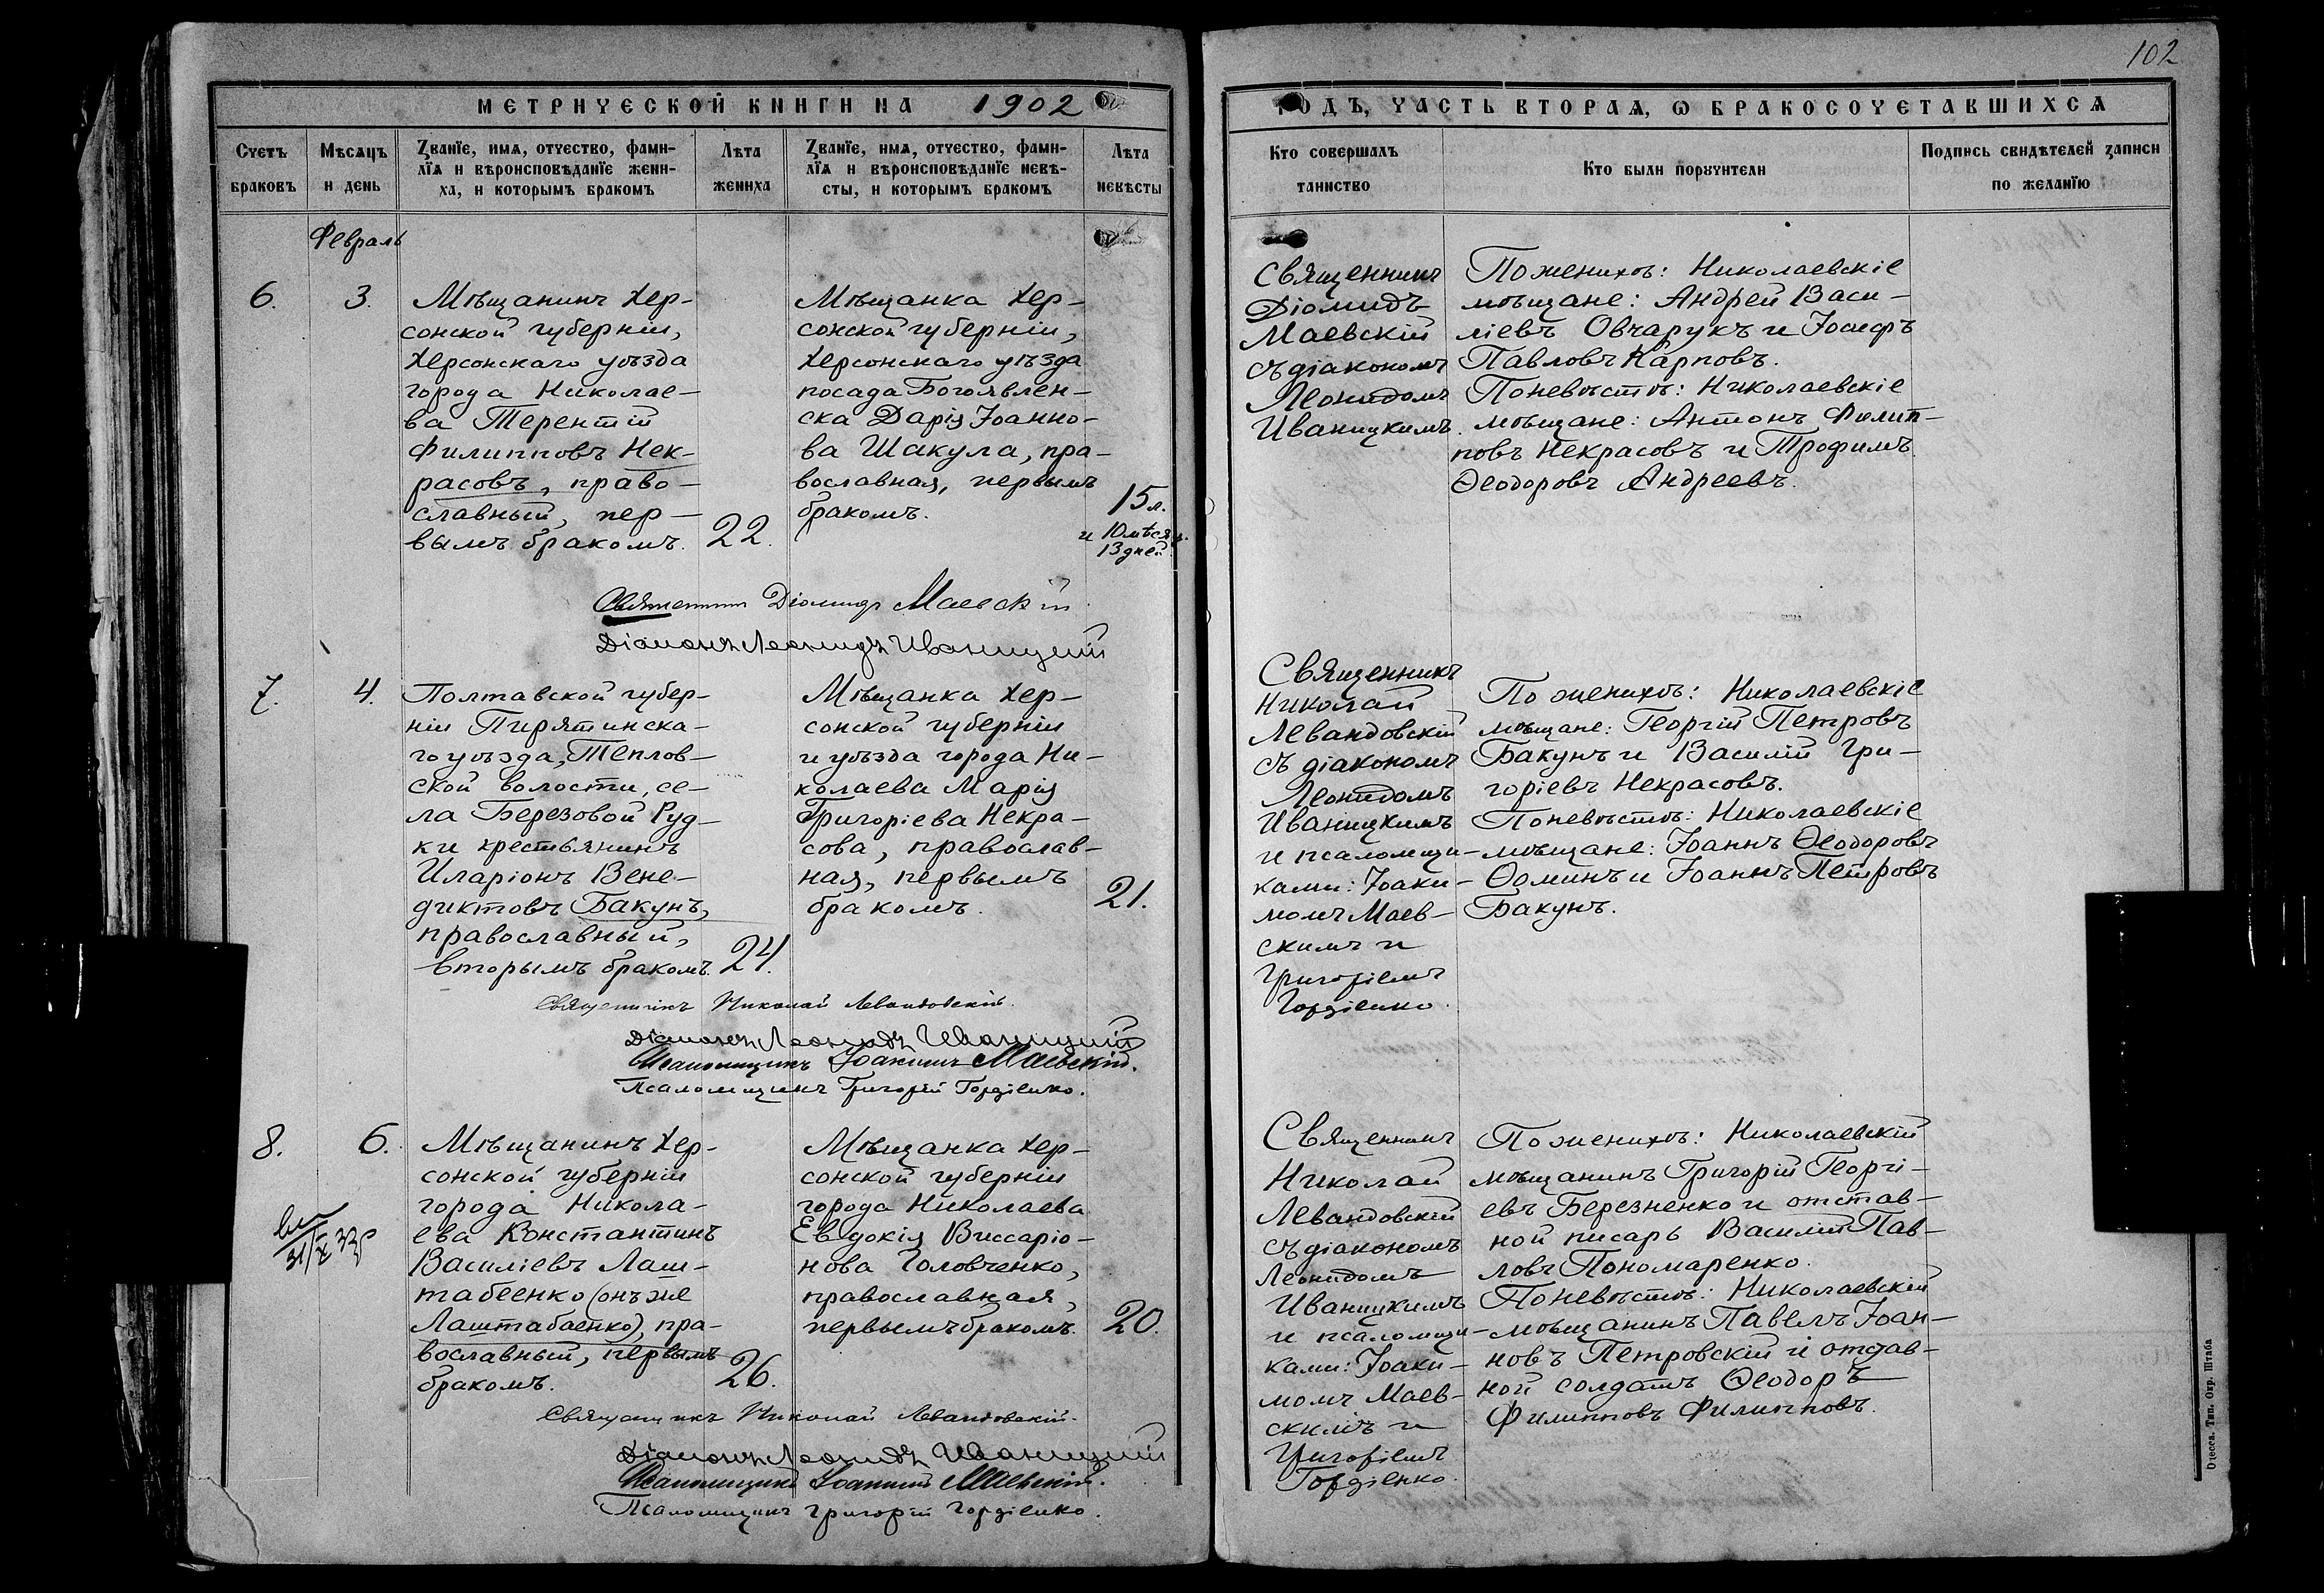 102
МЕТРИЧЕСКОЙ КНИГИ НА 1902
ГОДЪ, ЧАСТЬ ВТОРАЯ, Ѡ БРАКОСОЧЕТАВШИХСЯ
Счетъ
браковъ
Мѣсяцъ
и день
Званїе, имя, отчество, фами-
лїя и вѣроисповѣданїе жени-
ха, и которымъ бракомъ
Лѣта
жениха
Званїе, имя, отчество, фами-
лїя и вѣроисповѣданїе невѣ-
сты, и которымъ бракомъ
Лѣта
невѣсты
Кто совершалъ
таинство
Кто были порꙋчители
Подпись свидѣтелей записи
по желанїю
Февраль
6.
3.
Мѣщанинъ Хер-
сонской губерніи,
Херсонскаго уѣзда
города Николае-
ва Терентій
Филипповъ Нек-
расовъ, право-
славный, пер-
вымъ бракомъ.
22.
Мѣщанка Хер-
сонской губерніи,
Херсонскаго уѣзда
посада Богоявлен-
ска Дарія Іоанно-
ва Шакула, пра-
вославная, первымъ
бракомъ.
15 л.
и 10 мѣсяц.
13 дней.
Священникъ
Діомидъ
Маевскій
съ діакономъ
Леонидомъ
Иваницкимъ.
По женихѣ: Николаевскіе
мѣщане: Андрей Васи-
ліевъ Овчарукъ и Іосифъ
Павловъ Карповъ.
По невѣстѣ: Николаевскіе
мѣщане: Антонъ Филип-
повъ Некрасовъ и Трофимъ
Ѳеодоровъ Андреевъ.
Священникъ Діомидъ Маевскій
Діаконъ Леонидъ Иваницкій
7.
4.
Полтавской губер-
ніи Пирятинска-
го уѣзда, Теплов-
ской волости, се-
ла Березовой Руд-
ки крестьянинъ
Иларіонъ Вене-
диктовъ Бакунъ,
православный,
вторымъ бракомъ.
24.
Мѣщанка Хер-
сонской губерніи
и уѣзда города Ни-
колаева Марія
Григоріева Некра-
сова, православ-
ная, первымъ
бракомъ.
21.
Священникъ
Николай
Левандовскій
съ діакономъ
Леонидомъ
Иваницкимъ
и псаломщи-
ками: Іоаки-
момъ Маев-
скимъ и
Григоріемъ
Гордіенко.
По женихѣ: Николаевскіе
мѣщане: Георгій Петровъ
Бакунъ и Василій Гри-
горіевъ Некрасовъ.
По невѣстѣ: Николаевскіе
мѣщане: Іоаннъ Ѳеодоровъ
Ѳоминъ и Іоаннъ Петровъ
Бакунъ.
Священникъ Николай Левандовскій.
Діаконъ Леонидъ Иваницкій
Псаломщикъ Іоакимъ Маевскій.
Псаломщикъ Григорій Гордіенко.
8.
6.
31/X 33
Мѣщанинъ Хер-
сонской губерніи
города Никола-
ева Константинъ
Василіевъ Лаш-
табеенко (онъ же
Лаштабаенко), пра-
вославный, первымъ
бракомъ.
26.
Мѣщанка Хер-
сонской губерніи
города Николаева
Евдокія Виссаріо-
нова Головченко,
православная,
первымъ бракомъ.
20.
Священникъ
Николай
Левандовскій
съ діакономъ
Леонидомъ
Иваницкимъ
и псаломщи-
ками: Іоаки-
момъ Маев-
скимъ и
Григоріемъ
Гордіенко.
По женихѣ: Николаевскій
мѣщанинъ Григорій Георгі-
евъ Березненко и отстав-
ной писарь Василій Пав-
ловъ Пономаренко.
По невѣстѣ: Николаевскій
мѣщанинъ Павелъ Іоан-
новъ Петровскій и отстав-
ной солдатъ Ѳеодоръ
Филипповъ Филипповъ.
Священникъ Николай Левандовскій.
Діаконъ Леонидъ Иваницкій
Псаломщикъ Іоакимъ Маевскій.
Псаломщикъ Григорій Гордіенко.
Одесса. Тип. Окр. Штаба